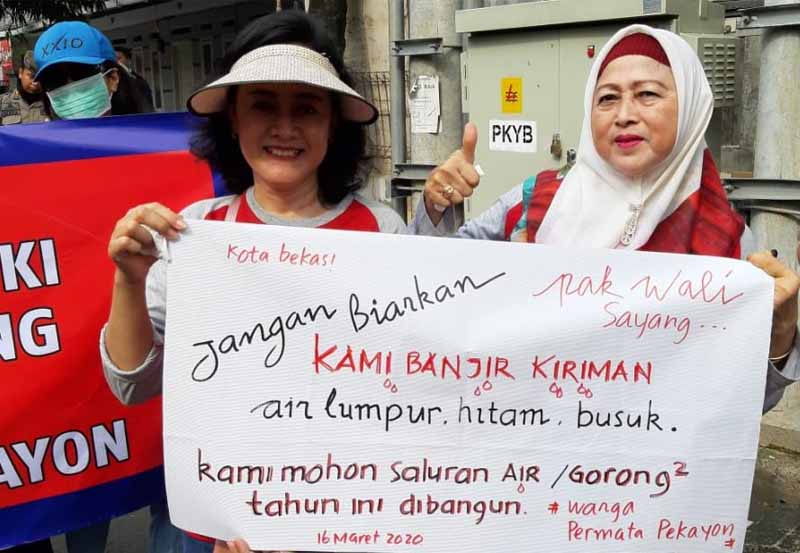 XXIO
PKYB
KI
NG
AYON
Kota bekasi
Pak Wali
Sayang...
Jangan Biarkan
KAMI BANJIR KIRIMAN
air lumpur, hitam, busuk.
kami mohon saluran AIR /Gorong²
tahun ini dibangun.
# warga
Permata Pekayon #
16 Maret 2020